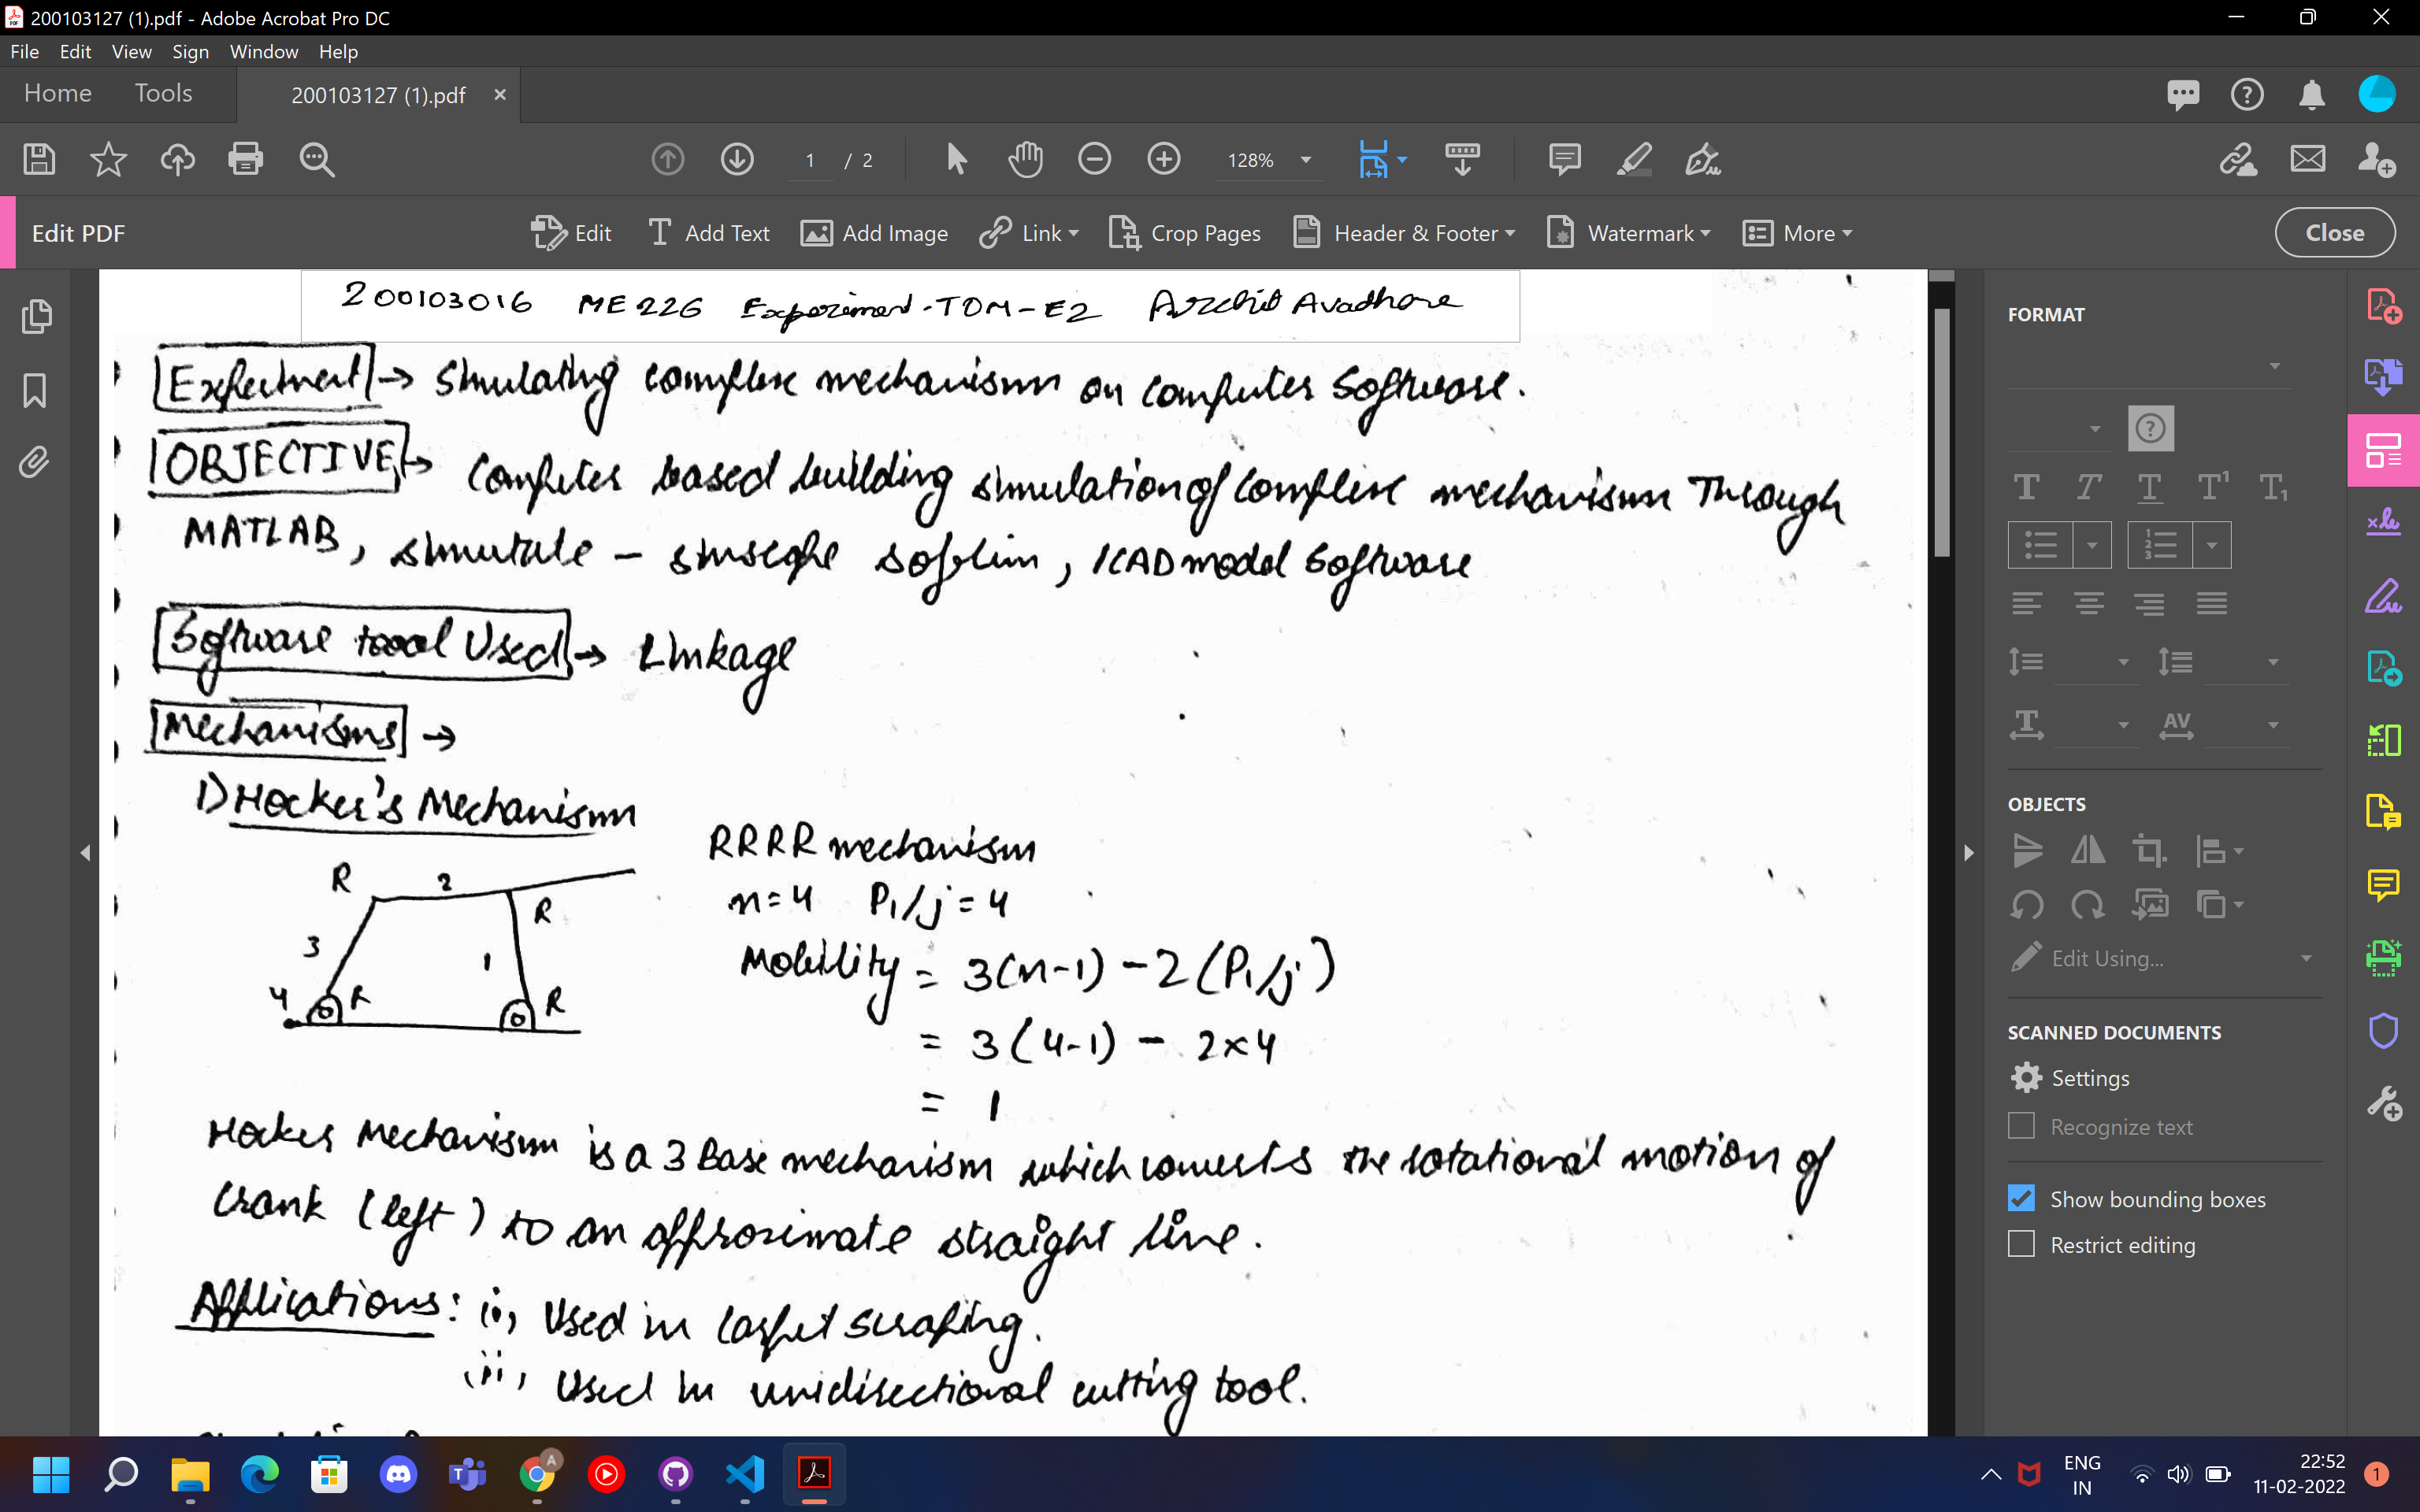 200103127 (1).pdf - Adobe Acrobat Pro DC
File Edit View Sign Window Help
Home Tools 200103127 (1).pdf ×
1 / 2 128%
Edit PDF Edit Add Text Add Image Link Crop Pages Header & Footer Watermark More Close
200103016 ME 226 Experiment-TOM-E2 Archit Avadhane
Experiment → Simulating complex mechanism on computer Software.
OBJECTIVE → Computer based building simulation of complex mechanism Through
MATLAB, - , CAD model Software
Software tool Used → Linkage
Mechanisms →
1) Hocker's Mechanism
RRRR mechanism
n=4 P1/j = 4
Mobility = 3(n-1) - 2(P1/j)
= 3(4-1) - 2×4
= 1
R 2 R
3 1
4 R R
Hocker Mechanism is a 3 Base mechanism which converts the rotational motion of
Crank (left) to an approximate straight line.
Applications: (i), Used in carpet scraping.
(ii), Used in unidirectional cutting tool.
FORMAT
OBJECTS
Edit Using...
SCANNED DOCUMENTS
Settings
Recognize text
Show bounding boxes
Restrict editing
ENG
IN
22:52
11-02-2022
1